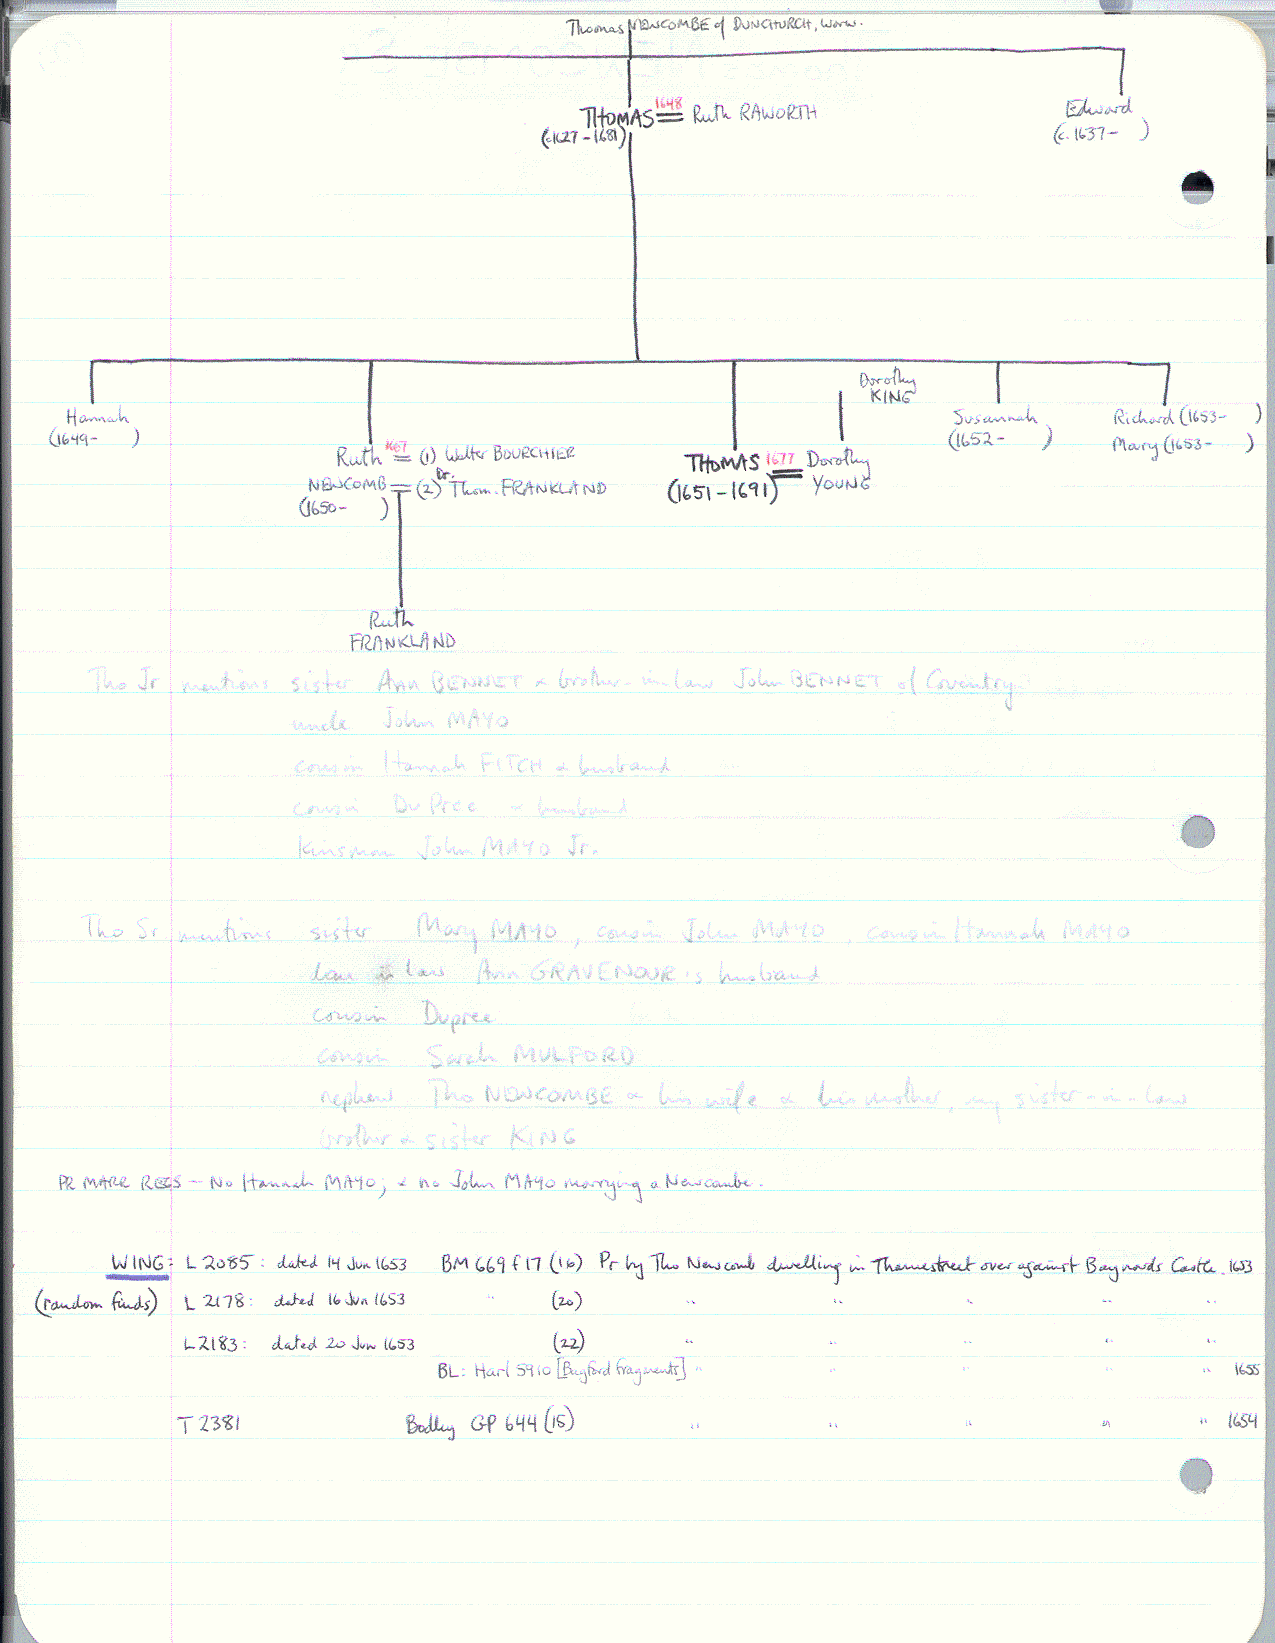 Thomas NEWCOMBE of DUNCHURCH, Warw.
THOMAS 1648 = Ruth RAWORTH
(c.1627-1681)
Edward
(c.1637- )
Hannah
(1649- )
Ruth 1667 = (1) Walter BOURCHIER
NEWCOMB = (2) Dr. Thom. FRANKLAND
(1650- )
Dorothy
KING
THOMAS 1677 = Dorothy
YOUNG
(1651-1691)
Susannah
(1652- )
Richard (1653- )
Mary (1653- )
Ruth
FRANKLAND
Tho Jr mentions sister Ann BENNET & brother-in-law John BENNET of Coventry
uncle John MAYO
cousin Hannah FITCH & husband
cousin Du Pree & husband
kinsman John MAYO Jr.
Tho Sr mentions sister Mary MAYO, cousin John MAYO, cousin Hannah MAYO
law Ann GRAVENOUR & husband
cousin Dupree
cousin Sarah MULFORD
nephew Tho NEWCOMBE & his wife & his mother, my sister-in-law
brother & sister KING
PR MARR REGS - No Hannah MAYO; & no John MAYO marrying a Newcombe.
WING: L 2085: dated 14 Jun 1653 BM 669 f 17 (16) Pr by Tho Newcomb dwelling in Thamestreet over against Baynards Castle. 1653
(random finds) L 2178: dated 16 Jun 1653 " (20) " " " " "
L 2183: dated 20 Jun 1653 (22) " " " " "
BL: Harl 5910 [Bagford Fragments] " " " " " 1655
T 2381 Bodley GP 644 (15) " " " " " 1654